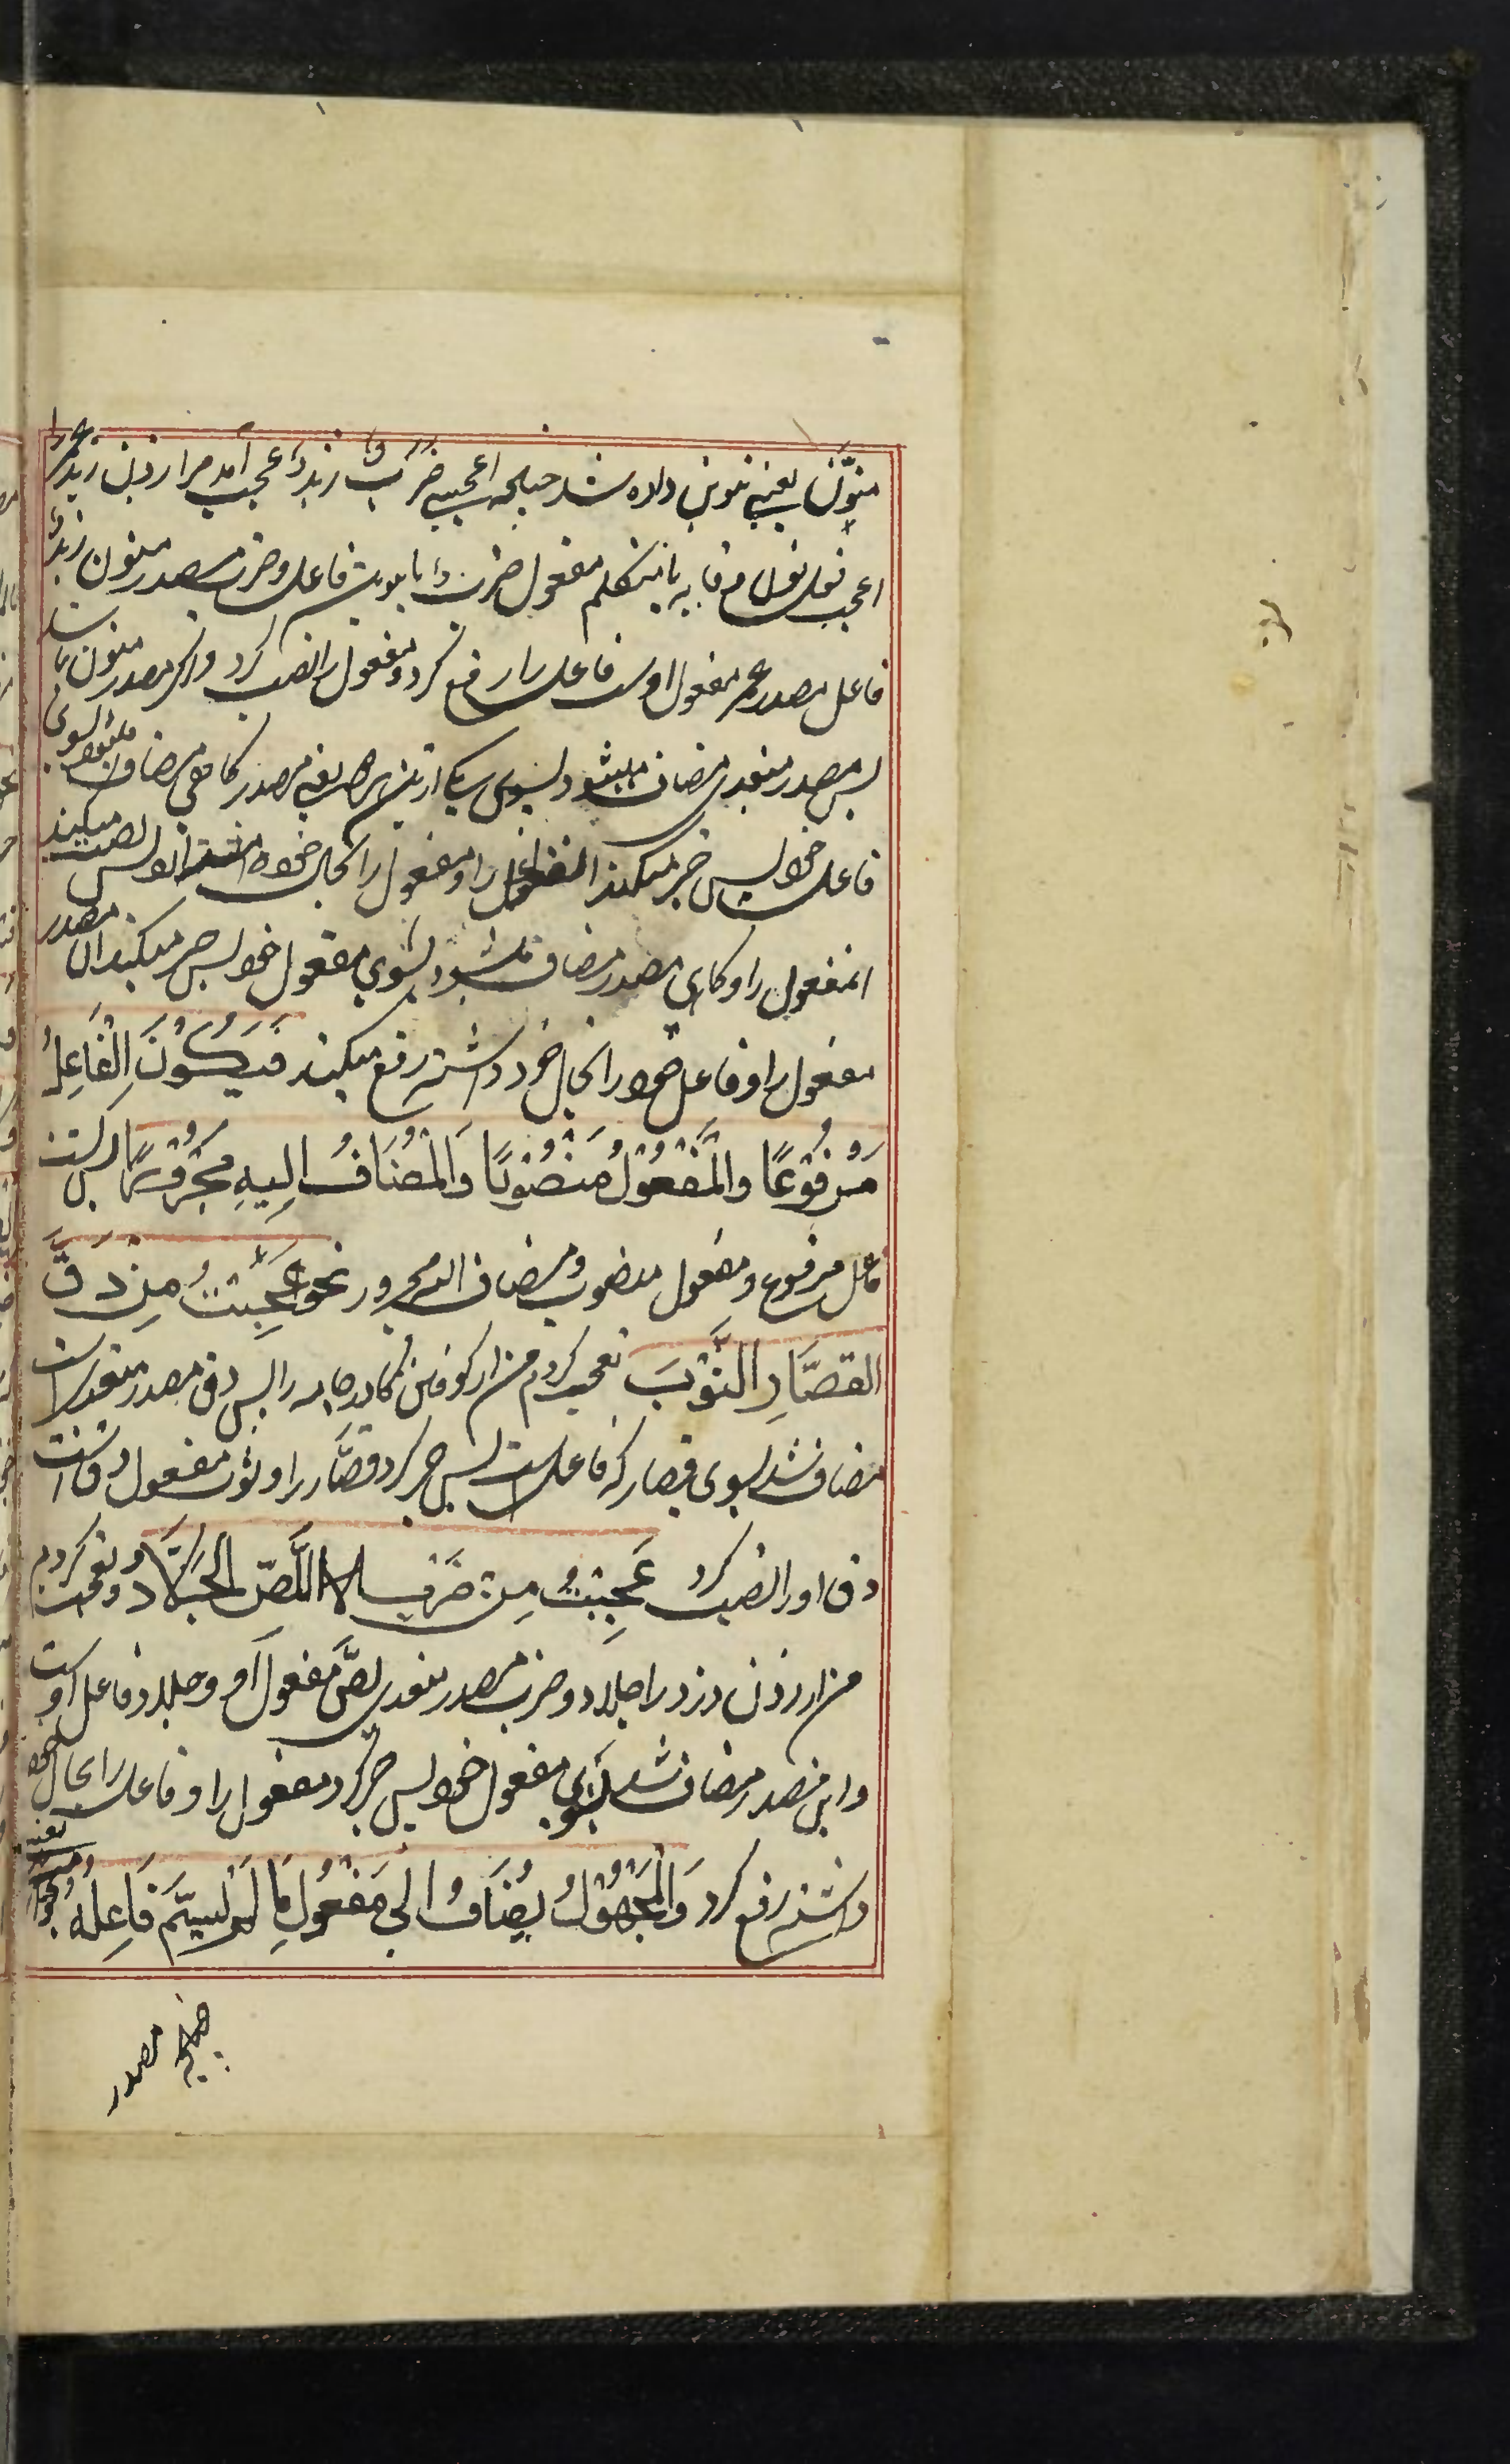 منوّن یعنی تنوین داده شد چنانچه اعجبنی ضربٌ زیدٌ عجب آمد مرا زدن زید عمرا
اعجب فعل نون وقایه یا متکلم مفعول ضرب فاعل وضرب مصدر منون زید
فاعل مصدر عمر مفعول اوست فاعل را رفع کرد و مفعول را نصب کرد و اگر مصدر منون نباشد
پس مصدر متعدی مضاف میشود بسوی یکی ازین هر یعنی مصدر گاهی مضاف میشود بسوی
فاعل خود پس جر میکند انفاعل را و مفعول را بحال خود نصب میکند
انمفعول را و گاهی مصدر مضاف میشود بسوی مفعول خود پس جر میکند ان مصدر
مفعول را و فاعل خود را بحال خود داشته رفع میکند فَیَکُونُ الْفَاعِلُ
مَرْفُوْعًا وَالْمَفْعُوْلُ مَنْصُوْبًا وَالْمُضَافُ اِلَیهِ مَجْرُوْرًا پس
فاعل مرفوع و مفعول منصوب و مضاف الیه مجرور نحو عَجِبْتُ مِنْ دَقِّ
القَصَّارِ الثَّوْبَ تعجب کردم من از کوفتن گاذر جامه را پس دق مصدر متعدی است
مضاف شد بسوی قصار که فاعل است پس جر کرد قصّار را و ثوب مفعول دق است
دق او را نصب کرد عَجِبْتُ مِنْ ضَرْبِ اللِّصِّ الجَلَّادُ و تعجب کردم
من از زدن دزد را جلاد و ضرب مصدر متعدی لصّ مفعول او و جلاد فاعل اوست
و این مصدر مضاف شد بسوی مفعول خود پس جر کرد مفعول را و فاعل را بحال خود
داشته رفع کرد وَالْمَجْهُوْلُ یُضَافُ اِلٰی مَفْعُوْلِ مَا لَمْ یُسَمَّ فَاعِلُهُ
مصدر